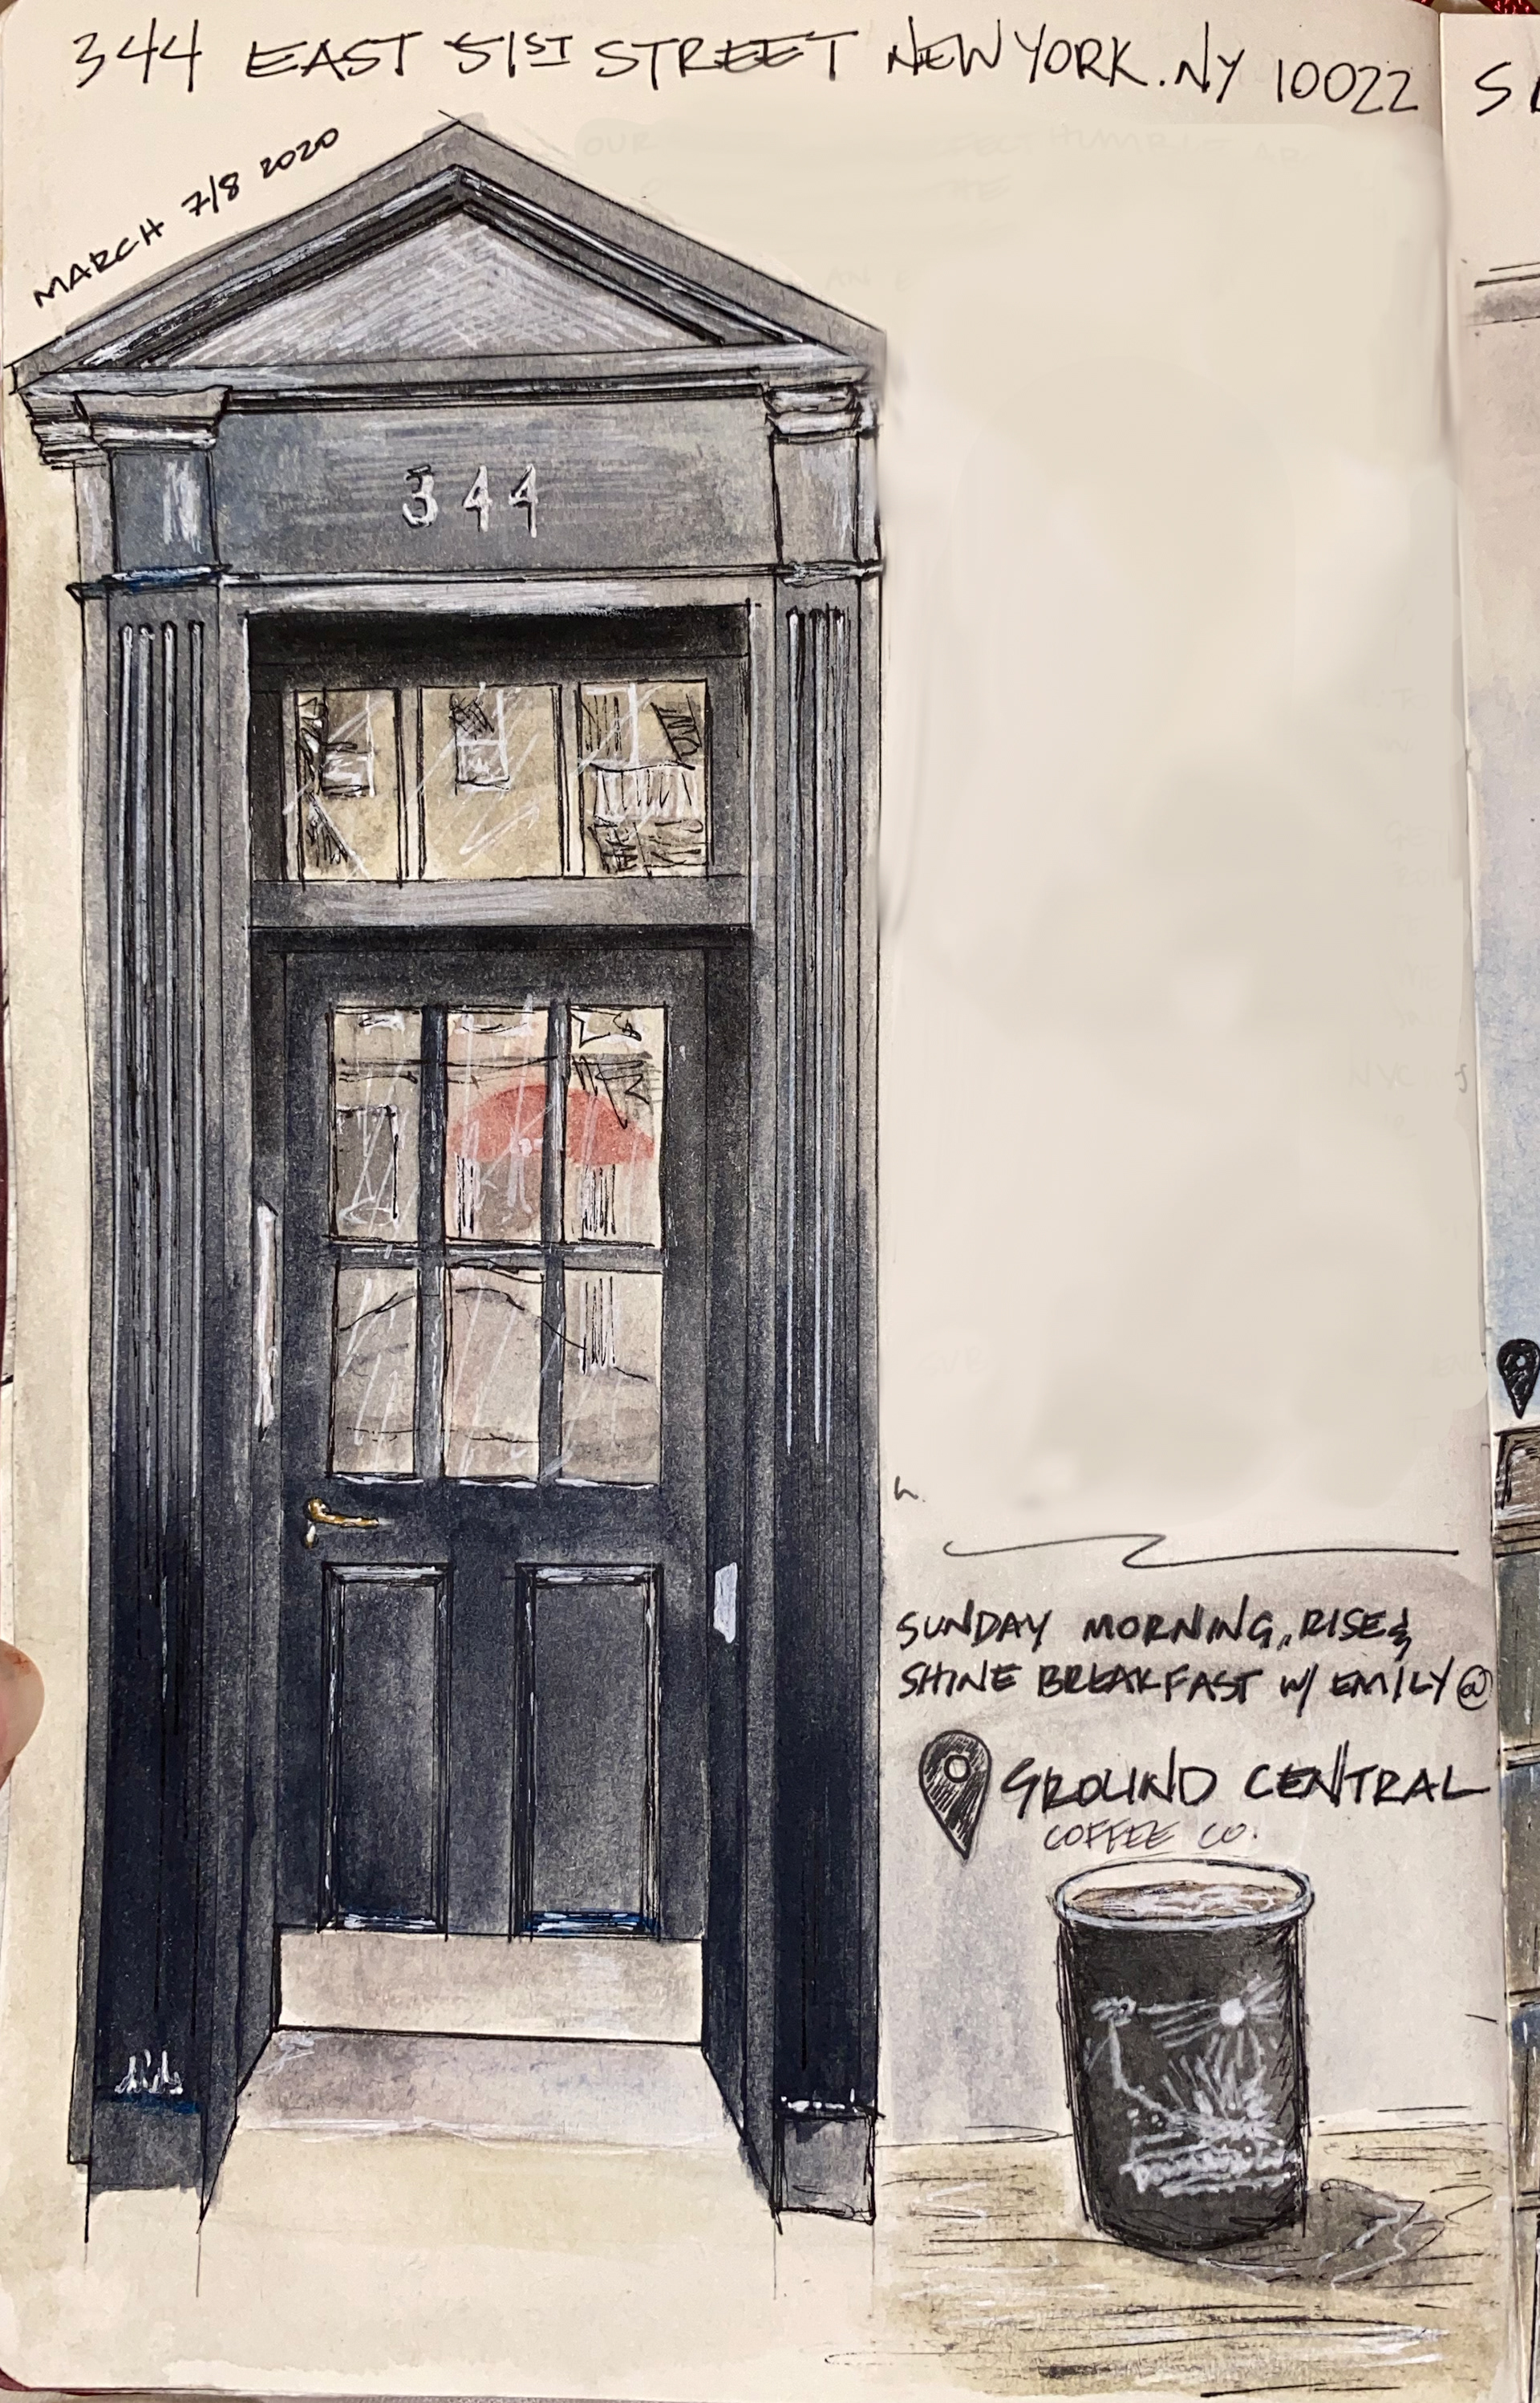 344 EAST 51ST STREET NEW YORK. NY 10022
MARCH 7/8 2020
344
SUNDAY MORNING, RISE &
SHINE BREAKFAST W/ EMILY @
GROUND CENTRAL
COFFEE CO.